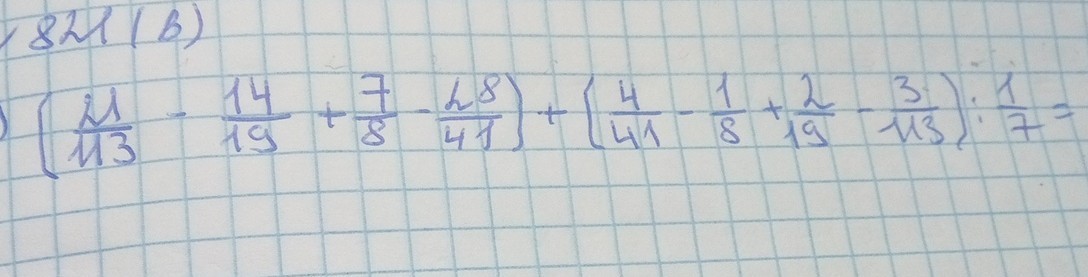 821 (в)
) (21/113 - 14/19 + 7/8 - 28/41) + (4/41 - 1/8 + 2/19 - 3/113) : 1/7 =